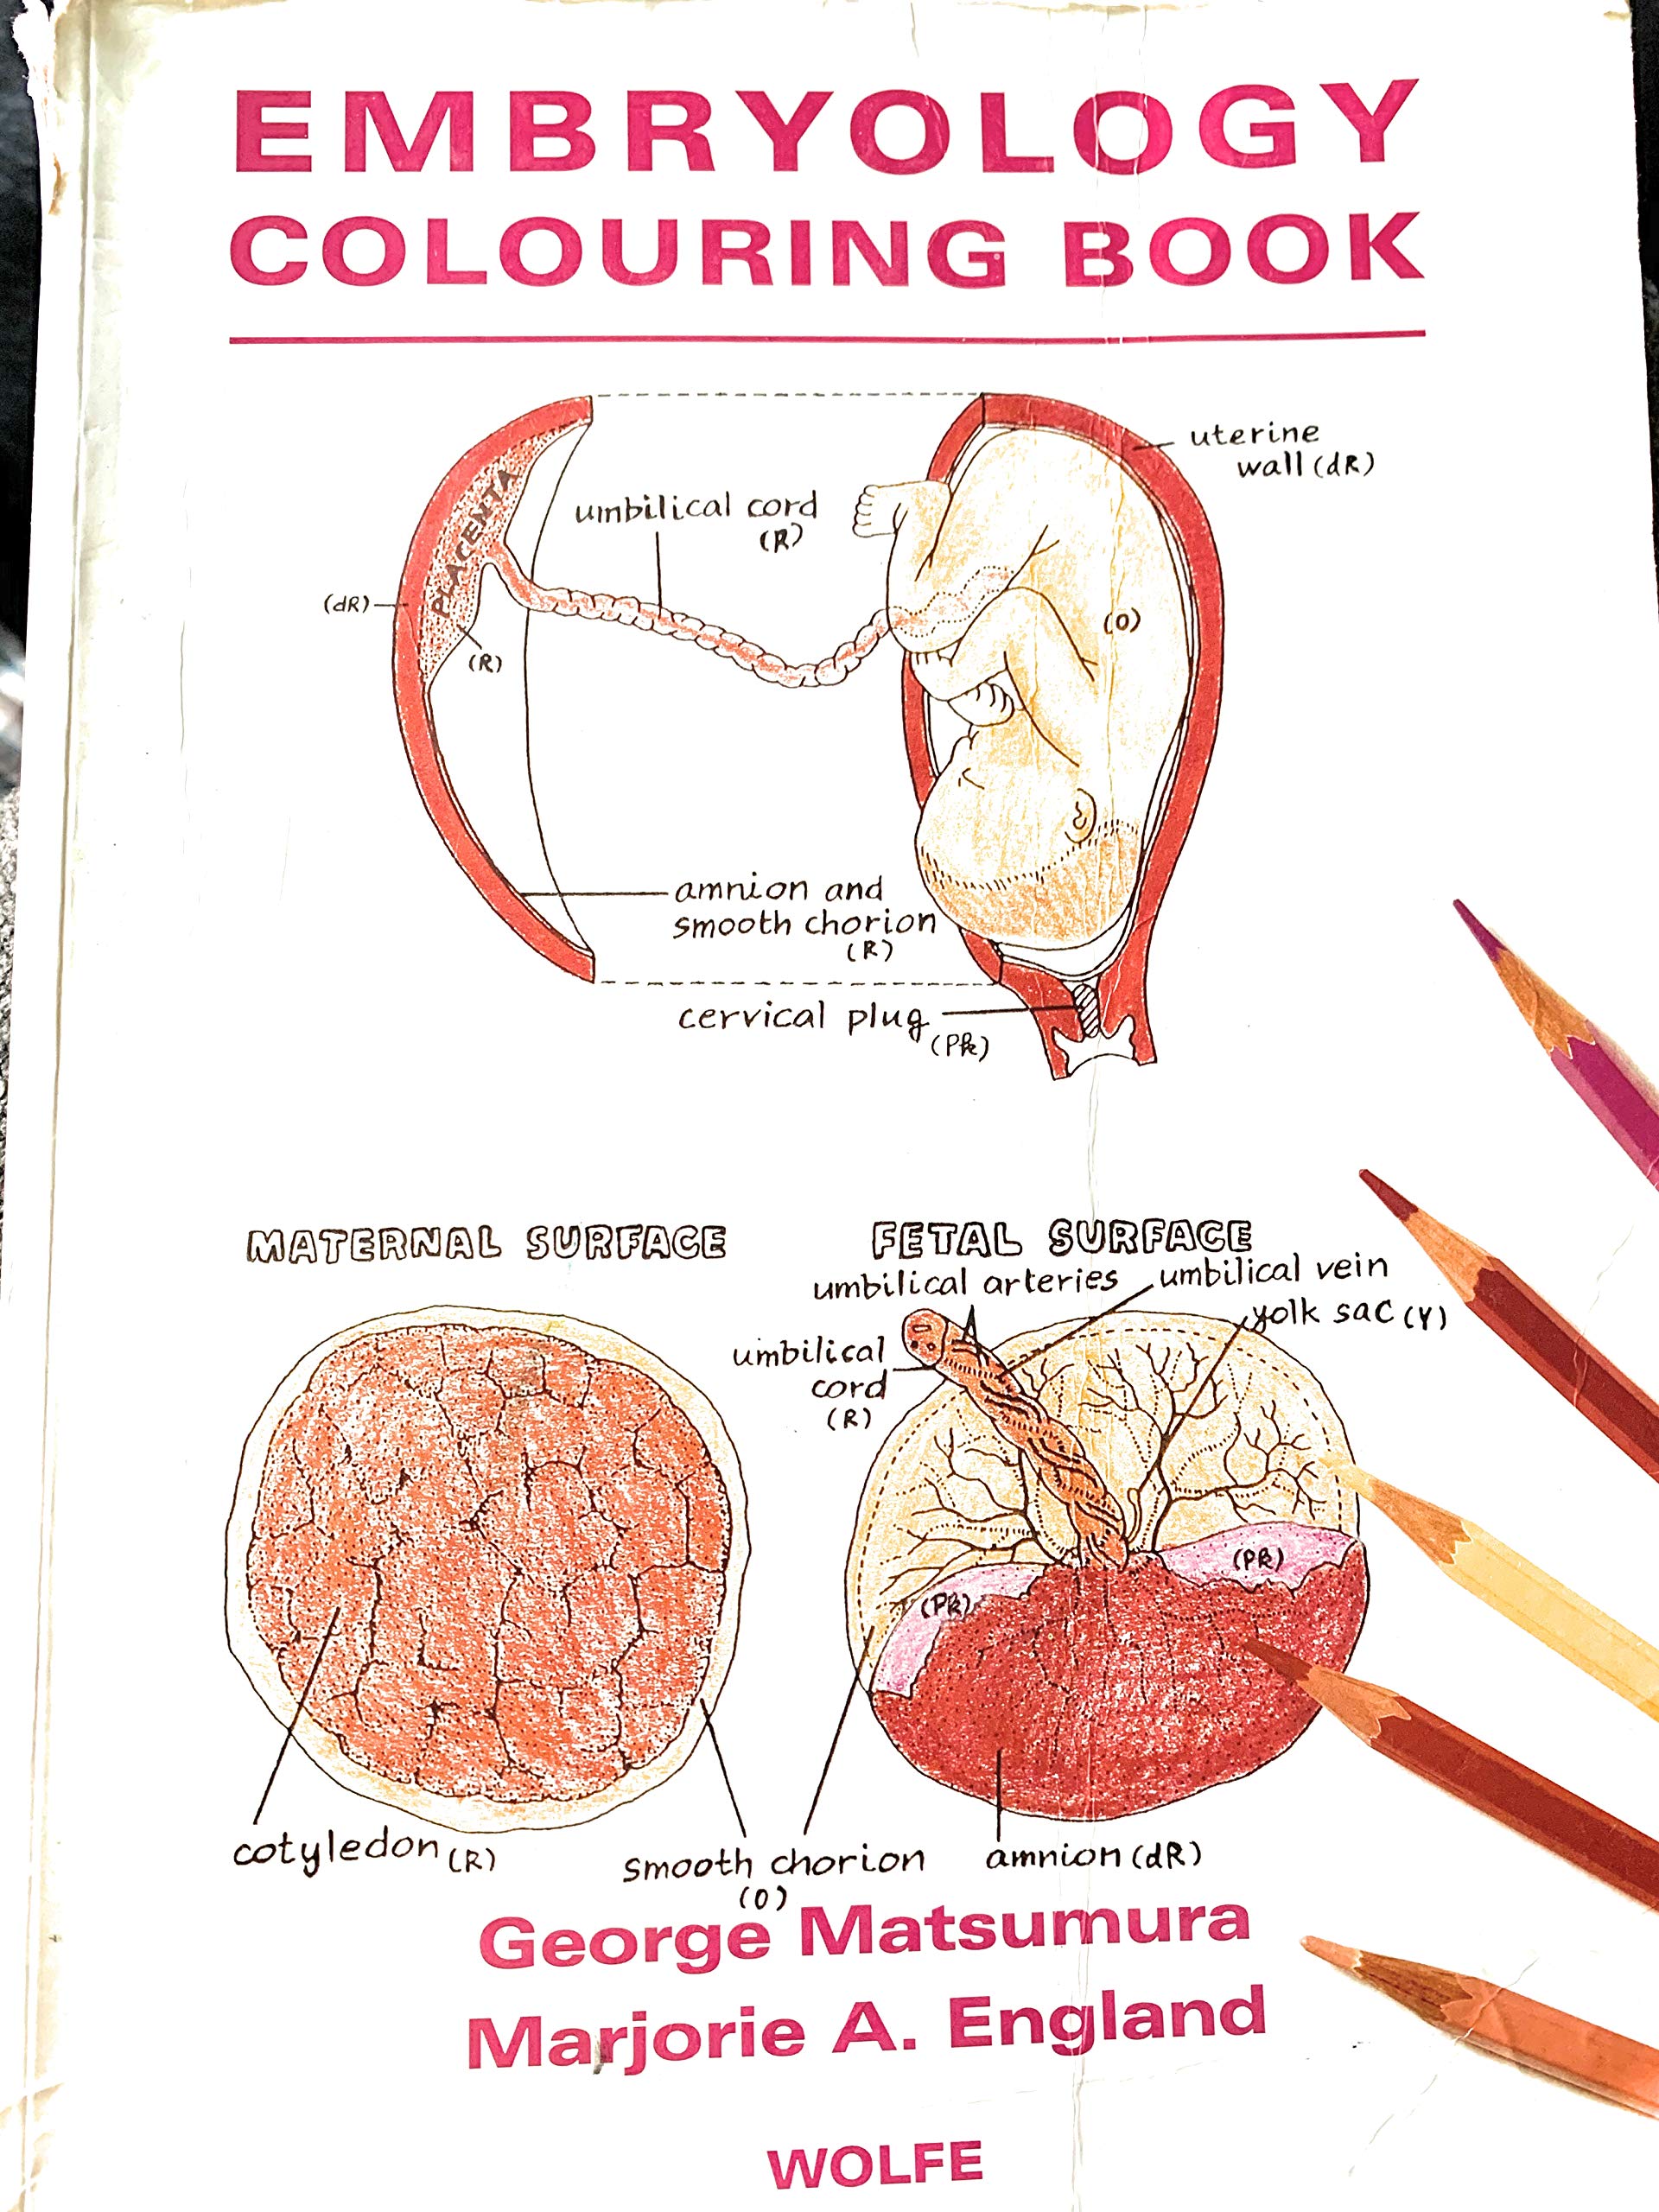 EMBRYOLOGY
COLOURING BOOK
uterine
wall (dR)
umbilical cord
(R)
PLACENTA
(dR)
(R)
(O)
amnion and
smooth chorion
(R)
cervical plug
(Pk)
MATERNAL SURFACE
FETAL SURFACE
umbilical arteries
umbilical vein
yolk sac (Y)
umbilical
cord
(R)
(Pk)
(Pk)
cotyledon (R)
smooth chorion
(O)
amnion (dR)
George Matsumura
Marjorie A. England
WOLFE